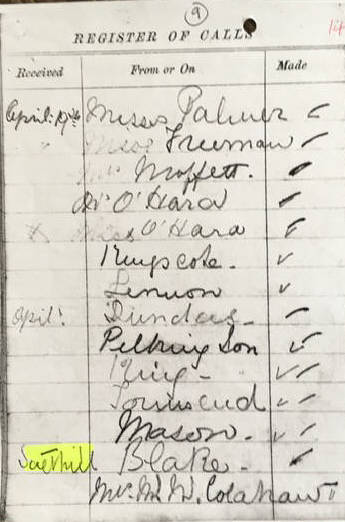 9
REGISTER OF CALLS
Received From or On Made
April: 19th Miss Palmer
" Miss Freeman
Mrs Moffett.
Dr O'Hara
Miss O'Hara
Kingscote.
Lennon
April: Dundas.
Pilkington
King -
Townsend
Mason.
Blake.